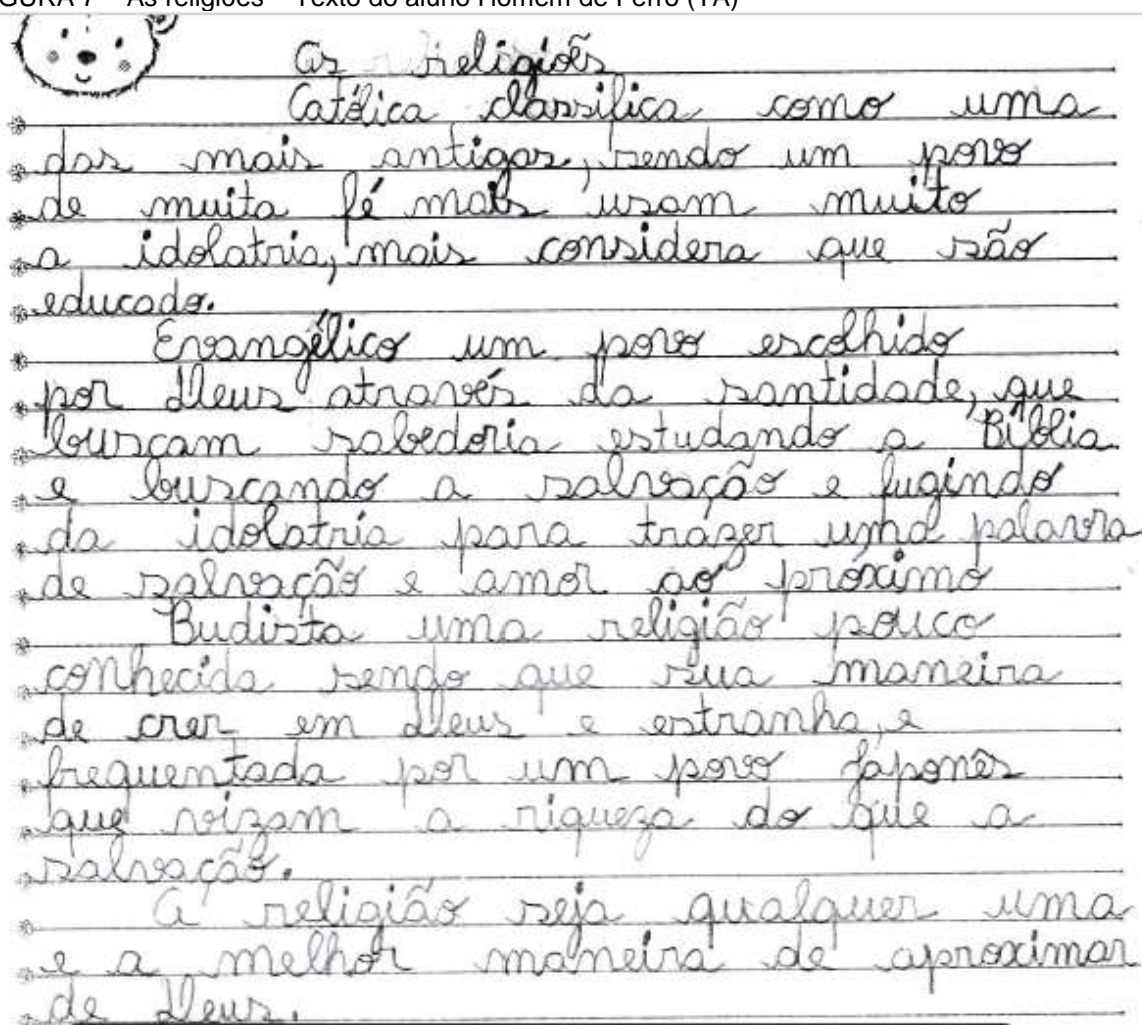 GURA 7 – As religiões – Texto do aluno Homem de Ferro (TA)
As religiões
Católica classifica como uma
das mais antigas, sendo um povo
de muita fé mais usam muito
a idolatria, mais considera que são
educado.
Evangélico um povo escolhido
por Deus através da santidade, que
buscam sabedoria estudando a Bíblia
e buscando a salvação e fugindo
da idolatria para trazer uma palavra
de salvação e amor ao próximo
Budista uma religião pouco
conhecida sendo que sua maneira
de crer em Deus e estranha, e
frequentada por um povo japonês
que vizam a riqueza do que a
salvação.
A religião seja qualquer uma
e a melhor maneira de aproximar
de Deus.